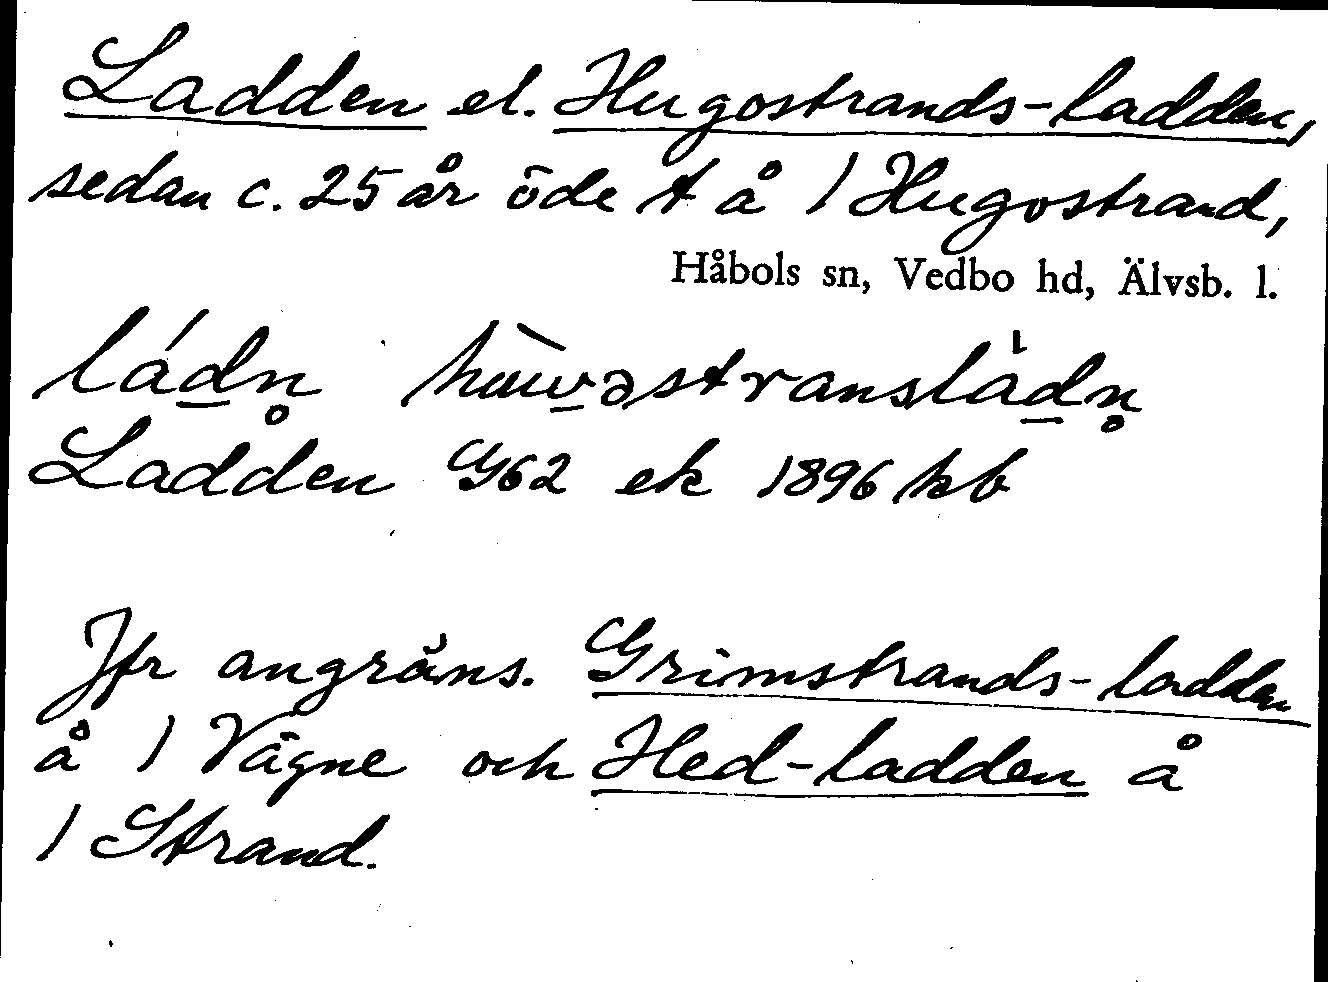 Ladden el. Hugostrands-ladden,
sedan c. 25 år öde t å 1 Hugostrand,
Håbols sn, Vedbo hd, Älvsb. l.
ládn̥ hùwəstranslàdn̥
Ladden G62 ek 1896 kb
Jfr angräns. Grimstrands-ladden
å 1 Vägne och Hed-ladden å
1 Strand.